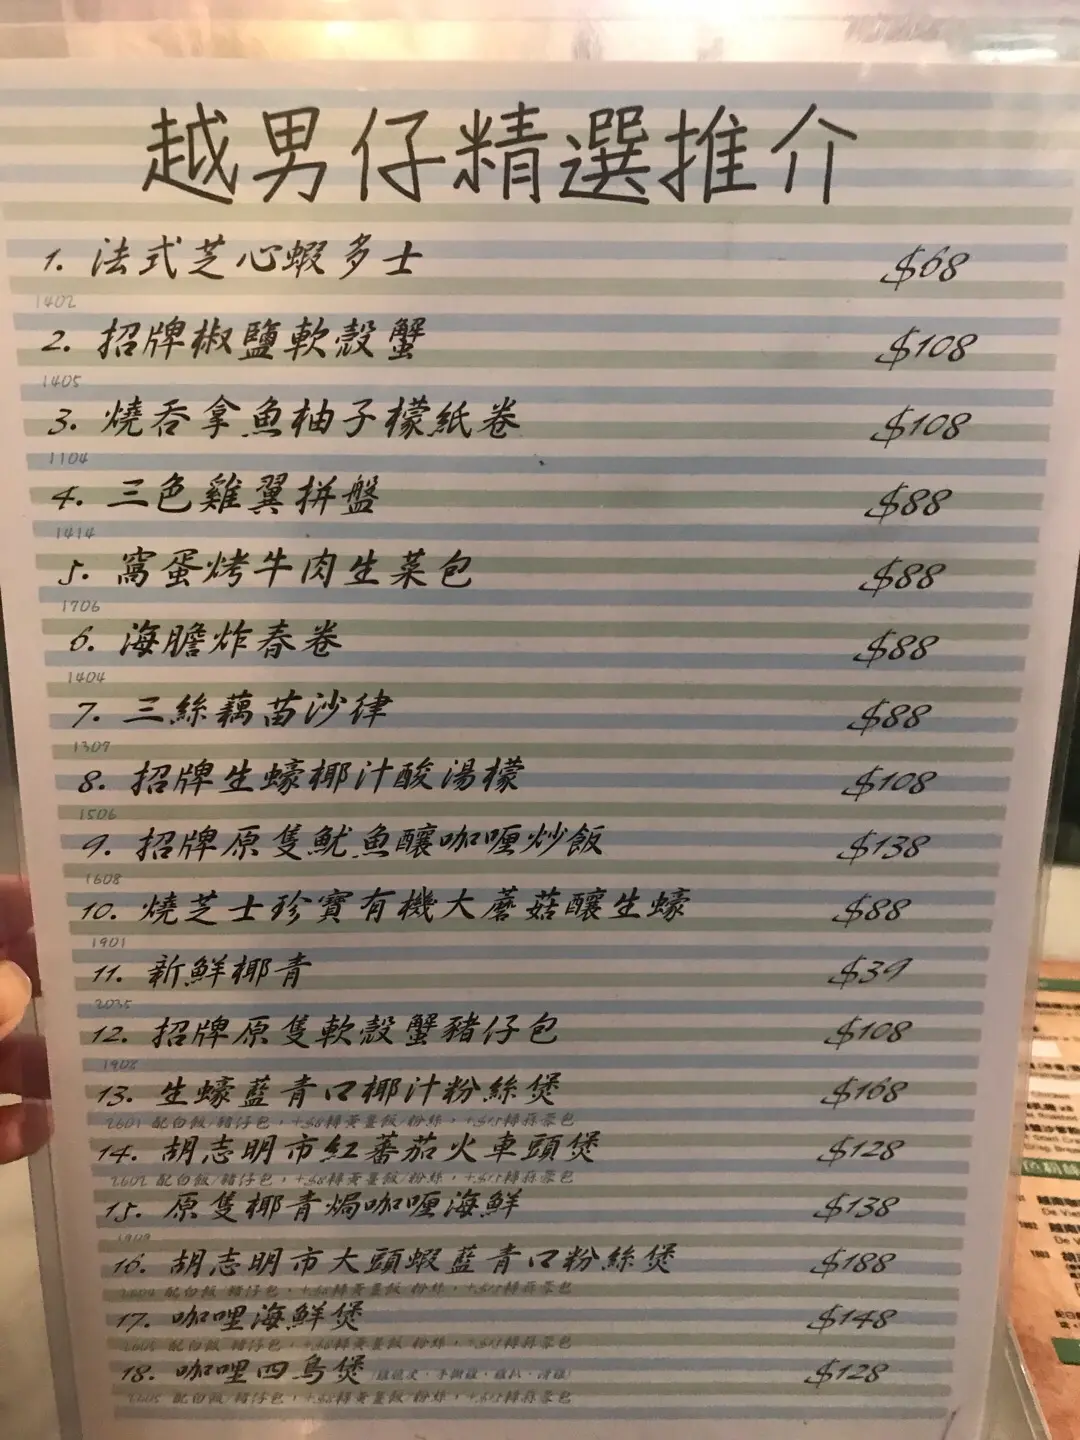 越男仔精選推介
1. 法式芝心蝦多士 $68
1402
2. 招牌椒鹽軟殼蟹 $108
1405
3. 燒吞拿魚柚子檬紙卷 $108
1104
4. 三色雞翼拼盤 $88
1414
5. 窩蛋烤牛肉生菜包 $88
1706
6. 海膽炸春卷 $88
1404
7. 三絲藕苗沙律 $88
1307
8. 招牌生蠔椰汁酸湯檬 $108
1506
9. 招牌原隻魷魚釀咖喱炒飯 $138
1608
10. 燒芝士珍寶有機大蘑菇釀生蠔 $88
1901
11. 新鮮椰青 $39
2035
12. 招牌原隻軟殼蟹豬仔包 $108
1902
13. 生蠔藍青口椰汁粉絲煲 $168
2601 配白飯/豬仔包，+$8轉黃薑飯/粉絲，+$15轉蒜蓉包
14. 胡志明市紅蕃茄火車頭煲 $128
2602 配白飯/豬仔包，+$8轉黃薑飯/粉絲，+$15轉蒜蓉包
15. 原隻椰青焗咖喱海鮮 $138
1909
16. 胡志明市大頭蝦藍青口粉絲煲 $188
配白飯 豬仔包，+$8轉黃薑飯 粉絲，+$15轉蒜蓉包
17. 咖哩海鮮煲 $148
配白飯 豬仔包，+$8轉黃薑飯 粉絲，+$15轉蒜蓉包
18. 咖哩四鳥煲 $128
2605 配白飯/豬仔包，+$8轉黃薑飯/粉絲，+$15轉蒜蓉包